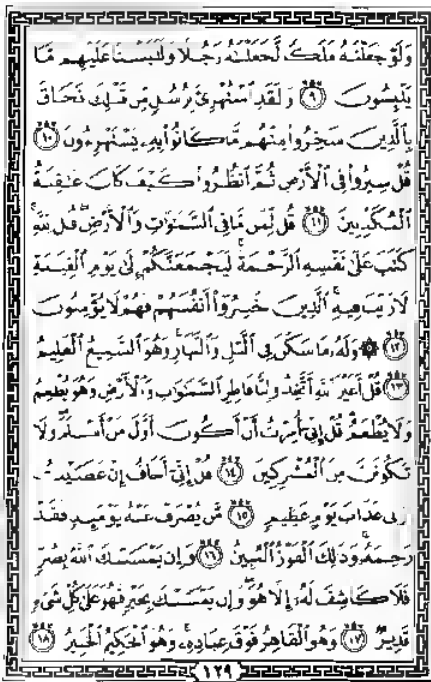 وَلَوْ جَعَلْنَـٰهُ مَلَكًا لَّجَعَلْنَـٰهُ رَجُلًا وَلَلَبَسْنَا عَلَيْهِم مَّا
يَلْبِسُونَ ٩ وَلَقَدِ ٱسْتُهْزِئَ بِرُسُلٍ مِّن قَبْلِكَ فَحَاقَ
بِٱلَّذِينَ سَخِرُوا۟ مِنْهُم مَّا كَانُوا۟ بِهِۦ يَسْتَهْزِءُونَ ١٠
قُلْ سِيرُوا۟ فِى ٱلْأَرْضِ ثُمَّ ٱنظُرُوا۟ كَيْفَ كَانَ عَـٰقِبَةُ
ٱلْمُكَذِّبِينَ ١١ قُل لِّمَن مَّا فِى ٱلسَّمَـٰوَٰتِ وَٱلْأَرْضِ ۖ قُل لِّلَّهِ ۚ
كَتَبَ عَلَىٰ نَفْسِهِ ٱلرَّحْمَةَ ۚ لَيَجْمَعَنَّكُمْ إِلَىٰ يَوْمِ ٱلْقِيَـٰمَةِ
لَا رَيْبَ فِيهِ ۚ ٱلَّذِينَ خَسِرُوٓا۟ أَنفُسَهُمْ فَهُمْ لَا يُؤْمِنُونَ
١٢ ۞ وَلَهُۥ مَا سَكَنَ فِى ٱلَّيْلِ وَٱلنَّهَارِ ۚ وَهُوَ ٱلسَّمِيعُ ٱلْعَلِيمُ
١٣ قُلْ أَغَيْرَ ٱللَّهِ أَتَّخِذُ وَلِيًّا فَاطِرِ ٱلسَّمَـٰوَٰتِ وَٱلْأَرْضِ وَهُوَ يُطْعِمُ
وَلَا يُطْعَمُ ۗ قُلْ إِنِّىٓ أُمِرْتُ أَنْ أَكُونَ أَوَّلَ مَنْ أَسْلَمَ ۖ وَلَا
تَكُونَنَّ مِنَ ٱلْمُشْرِكِينَ ١٤ قُلْ إِنِّىٓ أَخَافُ إِنْ عَصَيْتُ
رَبِّى عَذَابَ يَوْمٍ عَظِيمٍ ١٥ مَّن يُصْرَفْ عَنْهُ يَوْمَئِذٍ فَقَدْ
رَحِمَهُۥ ۚ وَذَٰلِكَ ٱلْفَوْزُ ٱلْمُبِينُ ١٦ وَإِن يَمْسَسْكَ ٱللَّهُ بِضُرٍّ
فَلَا كَاشِفَ لَهُۥٓ إِلَّا هُوَ ۖ وَإِن يَمْسَسْكَ بِخَيْرٍ فَهُوَ عَلَىٰ كُلِّ شَىْءٍ
قَدِيرٌ ١٧ وَهُوَ ٱلْقَاهِرُ فَوْقَ عِبَادِهِۦ ۚ وَهُوَ ٱلْحَكِيمُ ٱلْخَبِيرُ ١٨
١٢٩